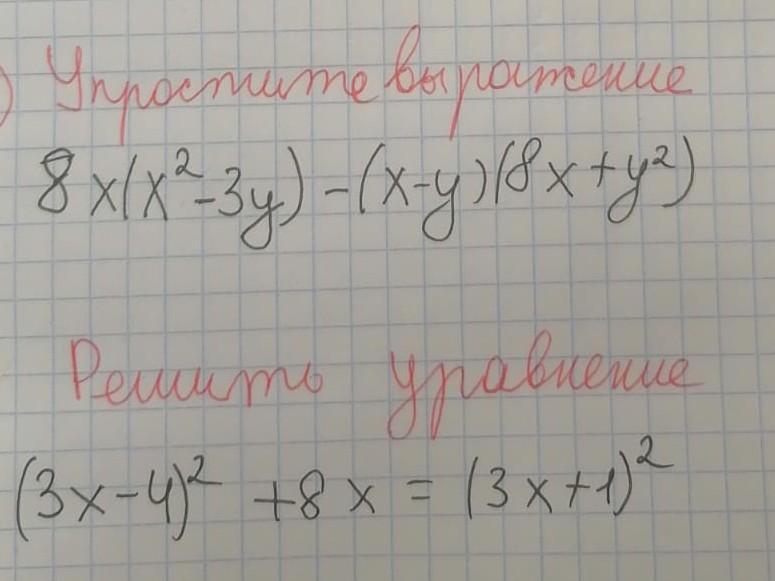 ) Упростите выражение
8x(x²-3y)-(x-y)(8x+y²)
Решить уравнение
(3x-4)² +8x = (3x+1)²